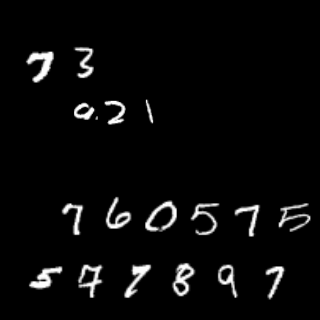 7 3
9 2 1
7 6 0 5 7 5
5 7 7 8 9 7